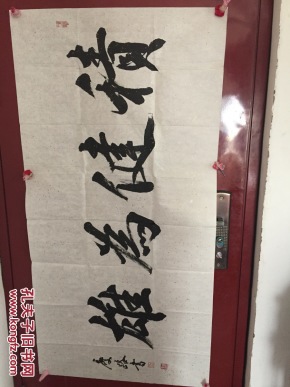 積健為雄
孔夫子旧书网
www.kongfz.com